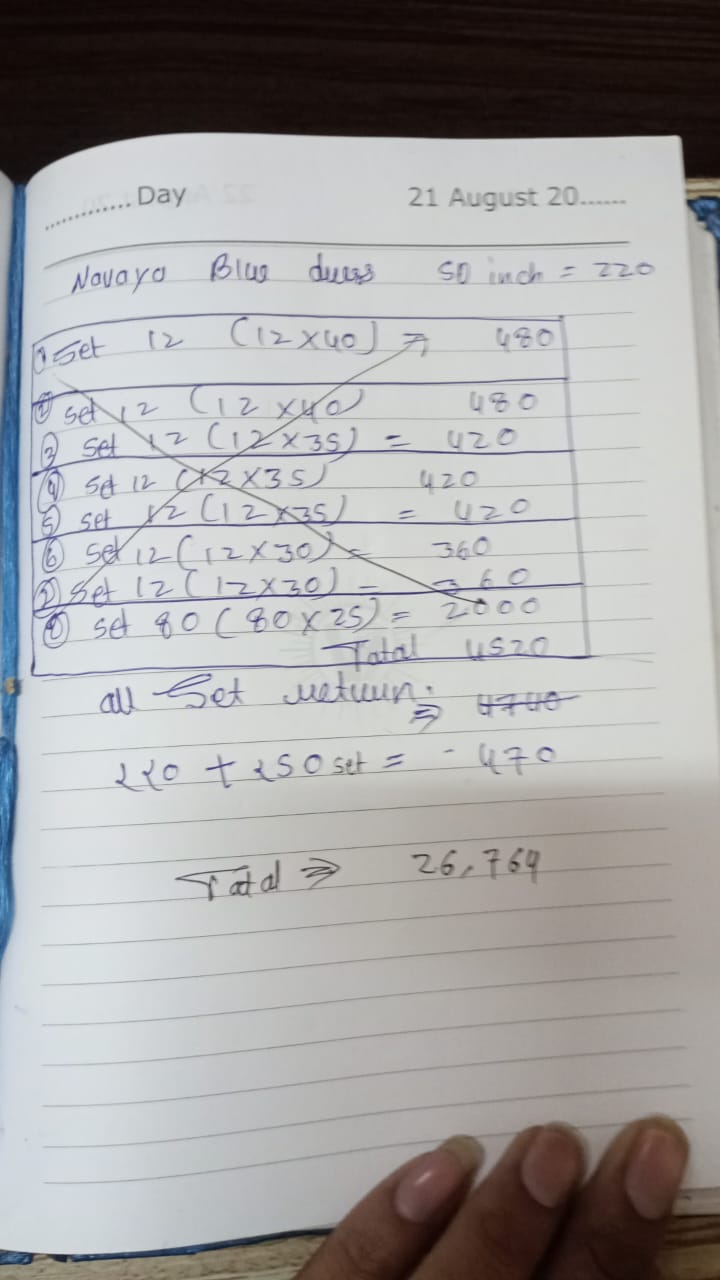 ............. Day 21 August 20......
Navaya Blue dress 50 inch = 220
① Set 12 (12×40) ⇒ 480
② set 12 (12×40) 480
③ set 12 (12×35) = 420
④ set 12 (12×35) 420
⑤ set 12 (12×35) = 420
⑥ set 12 (12×30) = 360
⑦ set 12 (12×30) = 360
⑧ set 80 (80×25) = 2000
Total 4520
all Set return.
⇒ 4740
220 + 250 set = - 470
Total ⇒ 26,764